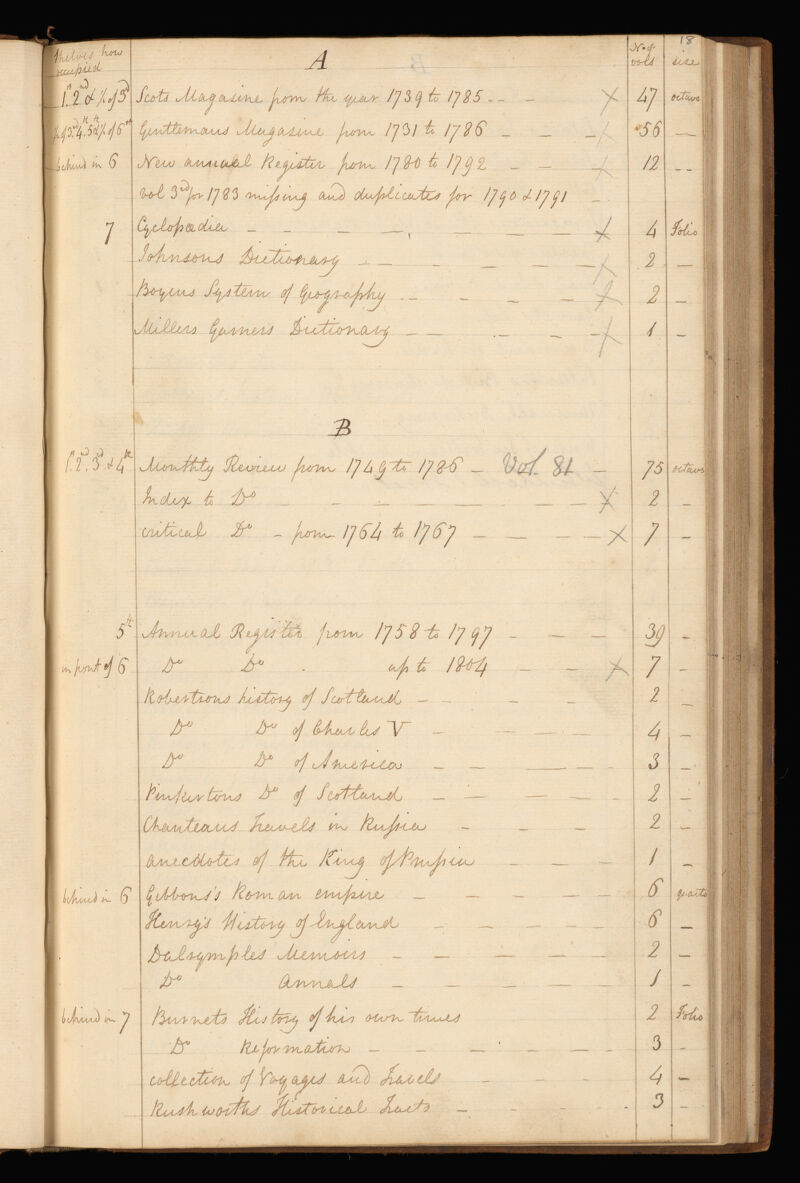 18
Shelves how occupied A No. of vols size
1st 2nd & ½ of 3d Scots Magasine from the year 1739 to 1785 47 octavo
½ of 3d 4th 5th & ½ of 6th Gentlemans Magasine from 1731 to 1786 56
behind in 6 New annual Register from 1780 to 1792 12
vol 3rd for 1783 missing and duplicates for 1790 & 1791
7 Cyclopædia 4 Folio
Johnsons Dictionary 2
Bowens System of Geography 2
Millers Garners Dictionary 1
B
1st 2nd 3d & 4th Monthly Review from 1749 to 1786 Vol. 81 75 octavo
Index to Do 2
critical Do from 1764 to 1767 7
5th Annual Register from 1758 to 1797 39
in front of 6 Do Do up to 1804 7
Robertsons history of Scotland 2
Do Do of Charles V 4
Do Do of America 3
Pinkertons Do of Scotland 2
Chanteaus Travels in Russia 2
anecdotes of the King of Prussia 1
behind in 6 Gibbons's Roman empire 6 quarto
Henry's History of England 6
Dalrymples Memoirs 2
Do Annals 1
behind in 7 Burnets History of his own times 2 Folio
Do Reformation 3
collection of Voyages and Travels 4
Rushworths Historical Tracts 3